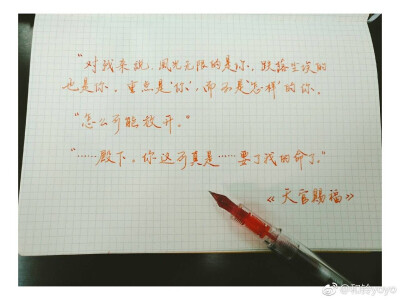 “对我来说，风光无限的是你，跌落尘埃的
也是你。重点是‘你’，而不是‘怎样’的你。
“怎么可能放开。”
“……殿下，你这可真是……要了我的命了。”
《天官赐福》